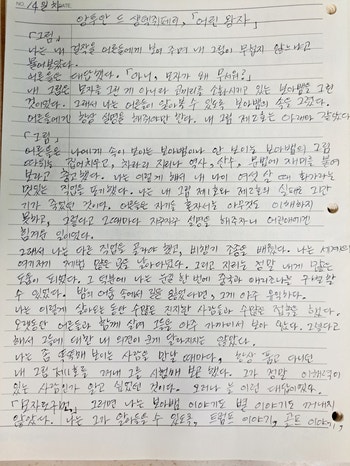 NO. 14일차 DATE.
앙투안 드 생텍쥐페리, 「어린 왕자」
「그림」
나는 내 걸작을 어른들에게 보여 주며 내 그림이 무섭지 않느냐고
물어보았다.
어른들은 대답했다. 「아니, 모자가 왜 무서워?」
내 그림은 모자를 그린 게 아니라 코끼리를 소화시키고 있는 보아뱀을 그린
것이었다. 그래서 나는 어른들이 알아볼 수 있도록 보아뱀의 속을 그렸다.
어른들에겐 항상 설명을 해주어야만 한다. 내 그림 제2호는 아래와 같았다.
「그림」
어른들은 나에게 속이 보이는 보아뱀이나 안 보이는 보아뱀의 그림
따위는 집어치우고, 차라리 지리나 역사, 산수, 문법에 재미를 붙여
보라고 충고했다. 나는 이렇게 해서 내 나이 여섯 살 때 화가라는
멋있는 직업을 포기했다. 나는 내 그림 제1호와 제2호의 실패로 그만
기가 죽었던 것이다. 어른들은 자기들 혼자서는 아무것도 이해하지
못하고, 그렇다고 그때마다 자꾸자꾸 설명을 해주자니 어린애에겐
힘겨운 일이었다.
그래서 나는 다른 직업을 골라야 했고, 비행기 조종을 배웠다. 나는 세계의
여기저기 꽤 많은 곳을 날아다녔다. 그리고 지리는 정말 내게 많은
도움이 되었다. 그 덕분에 나는 한 번에 중국과 아리조나를 구별할
수 있었다. 밤의 어둠 속에서 길을 잃었다면, 그게 아주 유익하다.
나는 이렇게 살아오는 동안 수많은 진지한 사람들과 수많은 접촉을 했다.
오랫동안 어른들과 함께 살며 그들을 아주 가까이서 보아 왔다. 그렇다고
해서 그들에 대한 내 의견이 크게 달라지지는 않았다.
나는 좀 똑똑해 보이는 사람을 만날 때마다, 항상 품고 다니던
내 그림 제1호를 꺼내 그를 시험해 보곤 했다. 그가 정말 이해력이
있는 사람인가 알고 싶었던 것이다. 그러나 늘 이런 대답이었다.
「모자로구먼.」 그러면 나는 보아뱀 이야기도 별 이야기도 꺼내지
않았다. 나는 그가 알아들을 수 있도록, 트럼프 이야기, 골프 이야기,